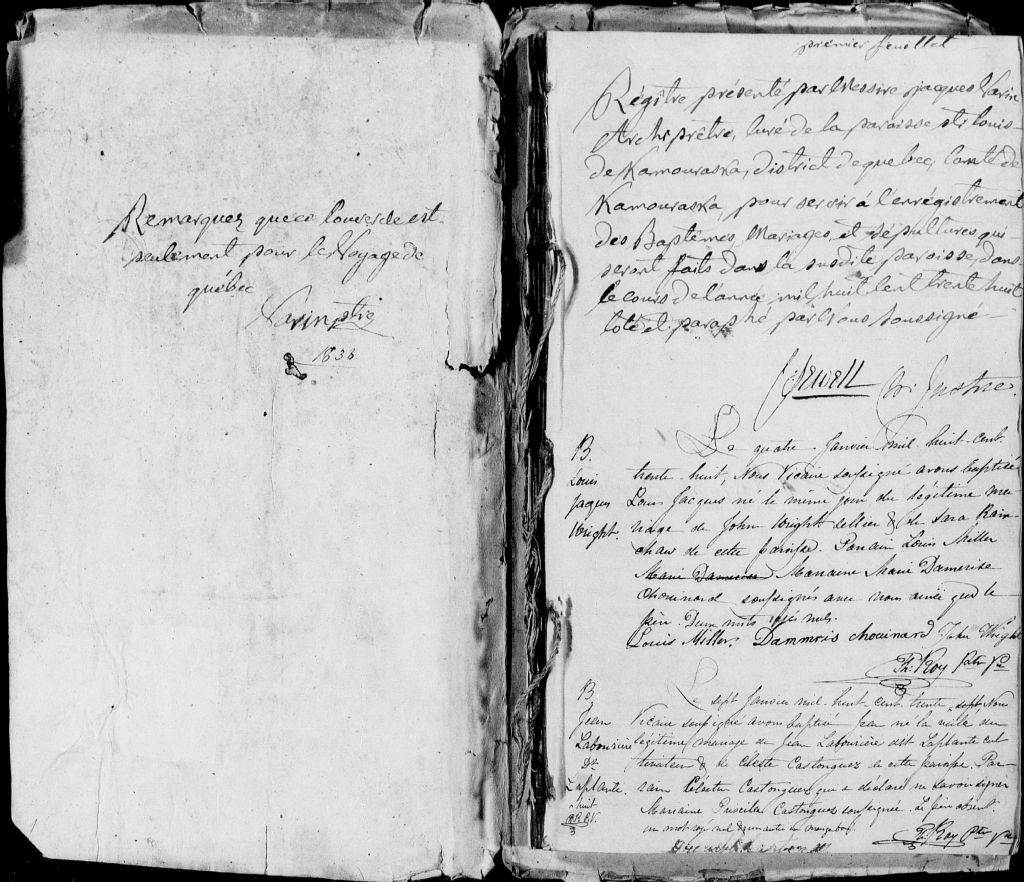 Remarquez que ce louverde est
seulement pour le Voyage de
québec
Varin ptre
1838
premier feuillet
Régître présenté par Messire jacques Varin
Archiprêtre, Curé de la paroisse st louis
de Kamouraska, district de quebec, Comté de
Kamouraska, pour servir à l'enrégistrement
des Baptêmes, Mariages, et sépultures qui
seront faits dans la susdite paroisse, dans
le cours de l'année mil huit Cent trente huit
Coté et paraphé par Nous soussigné
Sewell
B.
Louis
Jacques
Wright.
Le quatre Janvier mil huit cent
trente huit, Nous Vicaire soussigné avons baptisé
Louis Jacques né le même jour du légitime ma
riage de John Wright sellier & de Sara Rain
chaw de cette paroisse. Parrain Louis Miller
Marie Damerise Maraine Marie Damerise
Chouinard soussignés avec nous ainsi que le
père. Deux mots rayés nuls.
Louis Miller, Dammris chouinard John Wright
Th: Roy Ptre Vre
B.
Jean
Labourière
dt
Laplante.
Le sept Janvier mil huit cent trente sept, Nous
Vicaire soussigné avons baptisé Jean né la veille du
légitime mariage de Jean Labourière dit Laplante cul
tivateur & de Celeste Castonguez de cette paroisse. Par
rain Castonguez qui a déclaré ne savoir signer
Maraine Castonguez soussignée. Le père absent
un mot rayé nul en marge bon.
Th: Roy Ptre Vre